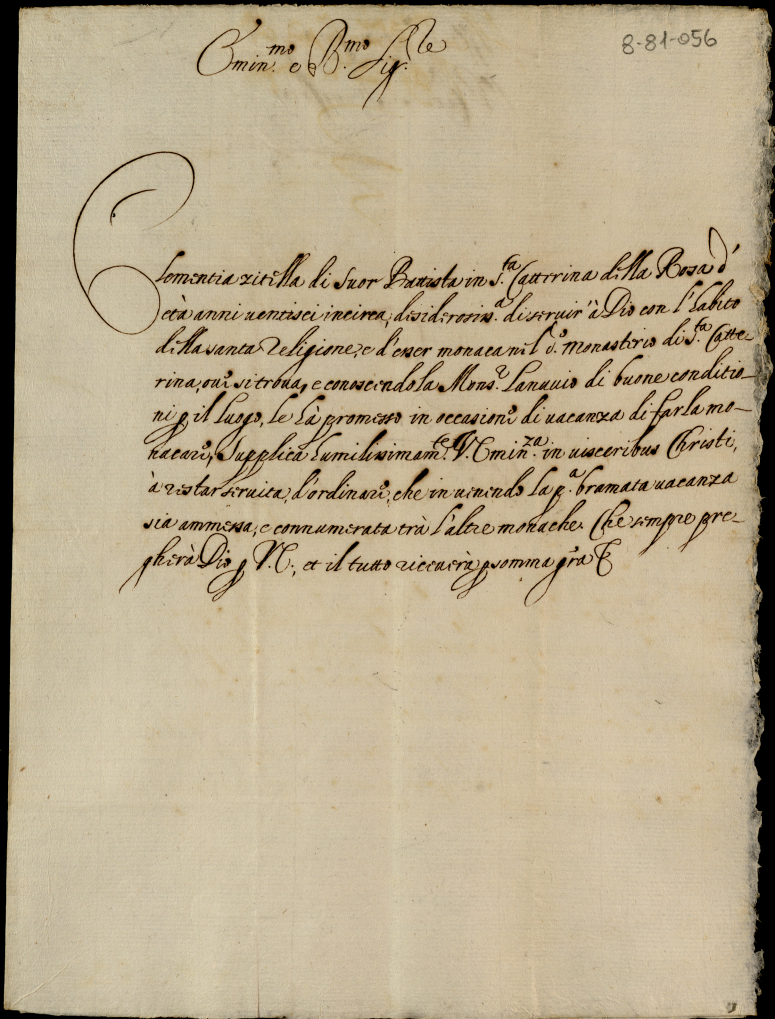 8-81-056
Emin.mo e R.mo Sig.re
Clementia zitella di Suor Battista in S.ta Catterina della Rosa d'
età anni uentisei incirca, desiderosiss.a di seruir à Dio con l'habito
della santa Religione, e d'esser monaca nel d.o monasterio di S.ta Catte-
rina, oue si troua, e conoscendola Mons.r Lanuuio di buone conditio-
ni p il luogo, le hà promesso in occasione di uacanza di farla mo-
nacare, Supplica humilissimam.te V. Emin.za in uisceribus Christi,
à restar seruita, d'ordinare, che in uenendo la p.a bramata uacanza
sia ammessa, e connumerata trà l'altre monache. Che sempre pre-
gherà Dio p V. E., et il tutto riceuerà p somma gra